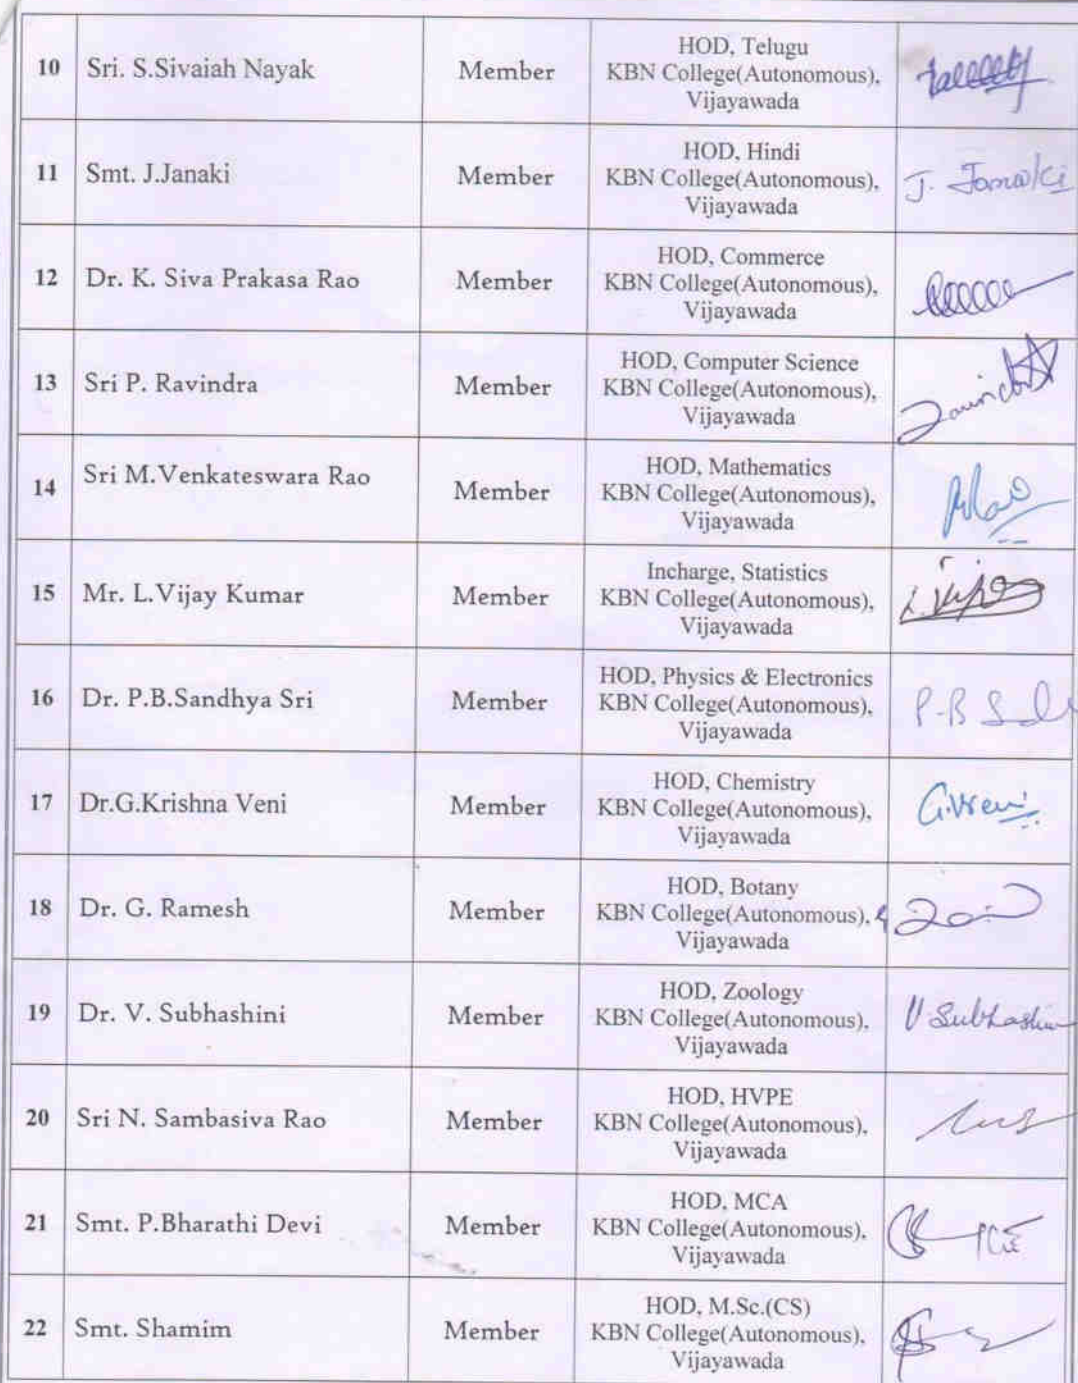 10 Sri. S.Sivaiah Nayak Member HOD, Telugu
KBN College(Autonomous),
Vijayawada
11 Smt. J.Janaki Member HOD, Hindi
KBN College(Autonomous),
Vijayawada
J. Janaki
12 Dr. K. Siva Prakasa Rao Member HOD, Commerce
KBN College(Autonomous),
Vijayawada
13 Sri P. Ravindra Member HOD, Computer Science
KBN College(Autonomous),
Vijayawada
14 Sri M.Venkateswara Rao Member HOD, Mathematics
KBN College(Autonomous),
Vijayawada
15 Mr. L.Vijay Kumar Member Incharge, Statistics
KBN College(Autonomous),
Vijayawada
16 Dr. P.B.Sandhya Sri Member HOD, Physics & Electronics
KBN College(Autonomous),
Vijayawada
P-B
17 Dr.G.Krishna Veni Member HOD, Chemistry
KBN College(Autonomous),
Vijayawada
18 Dr. G. Ramesh Member HOD, Botany
KBN College(Autonomous),
Vijayawada
19 Dr. V. Subhashini Member HOD, Zoology
KBN College(Autonomous),
Vijayawada
V. Subhashini
20 Sri N. Sambasiva Rao Member HOD, HVPE
KBN College(Autonomous),
Vijayawada
21 Smt. P.Bharathi Devi Member HOD, MCA
KBN College(Autonomous),
Vijayawada
22 Smt. Shamim Member HOD, M.Sc.(CS)
KBN College(Autonomous),
Vijayawada